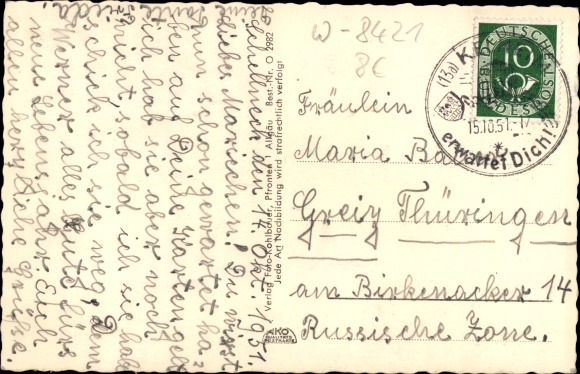 Schellbach den 14. Okt. 1951.
Liebes Mariechen! Du wirst
nun schon gewartet ha=
ben auf Deine Karten gel
ich hab sie aber noch
nicht, sobald ich sie habe
schick ich sie weg. Dem
Werner alles Gute fürs
neue Lebensjahr. Euch
allen herzliche Grüße.
Verlag Foto-Kohlbauer, Pfronten i. Allgäu Best.-Nr. O 2982
Jede Art Nachbildung wird strafrechtlich verfolgt
AKO
QUALITÄTS
POSTKARTE
W-8421
8C
DEUTSCHE
BUNDESPOST
10
(13a)
15.10.51.-17
erwartet Dich!
Fräulein
Maria
Greiz Thüringen
am Birkenacker 14
Russische Zone.